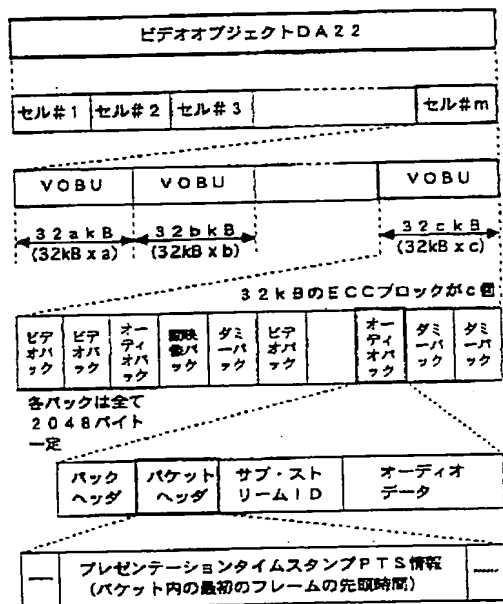 ビデオオブジェクトDA22
セル#1 セル#2 セル#3 セル#m
VOBU VOBU VOBU
32akB 32bkB 32ckB
(32kB x a) (32kB x b) (32kB x c)
32kBのECCブロックがc個
ビデオパック ビデオパック オーディオパック 副映像パック ダミーパック ビデオパック オーディオパック ダミーパック ダミーパック
各パックは全て
2048バイト
一定
パックヘッダ パケットヘッダ サブ・ストリームID オーディオデータ
プレゼンテーションタイムスタンプPTS情報
(パケット内の最初のフレームの先頭時間)